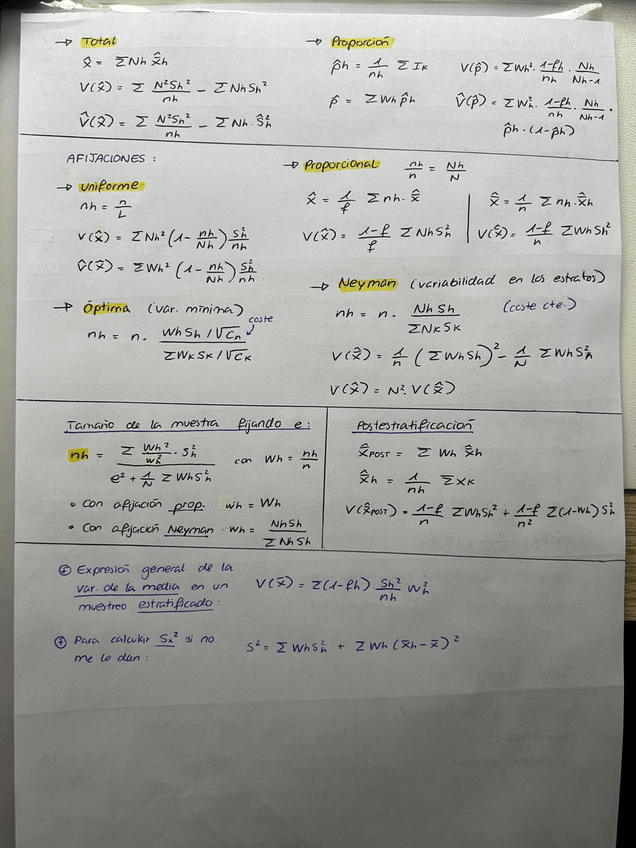 → Total
x̂ = ΣNh x̄̂h
V(x̂) = Σ N²Sh²/nh − ΣNhSh²
V̂(x̂) = Σ N²Sh²/nh − ΣNh·Ŝh²
→ Proporción
p̂h = 1/nh ΣIk
p̂ = ΣWh p̂h
V(p̂) = ΣWh² · (1-fh)/nh · Nh/(Nh-1)
V̂(p̂) = ΣWh² · (1-fh)/nh · Nh/(Nh-1) ·
p̂h·(1-p̂h)
AFIJACIONES :
→ Uniforme
nh = n/L
V(x̂) = ΣNh² (1- nh/Nh) Sh²/nh
V̂(x̄̂) = ΣWh² (1- nh/Nh) Sh²/nh
→ Óptima (var. mínima)
coste
nh = n · (WhSh/√Ch) / (ΣWkSk/√Ck)
→ Proporcional nh/n = Nh/N
x̂ = 1/f Σnh·x̄̂
V(x̂) = (1-f)/f ΣNhSh²
x̄̂ = 1/n Σnh·x̄̂h
V(x̄̂) = (1-f)/n ΣWhSh²
→ Neyman (variabilidad en los estratos)
(coste cte.)
nh = n · NhSh/ΣNkSk
V(x̄̂) = 1/n (ΣWhSh)² − 1/N ΣWhSh²
V(x̂) = N²·V(x̄̂)
Tamaño de la muestra fijando e:
nh = (Σ Wh²/wh² · Sh²) / (e² + 1/N ΣWhSh²) con wh = nh/n
• Con afijación prop. wh = Wh
• Con afijación Neyman wh = NhSh/ΣNhSh
Postestratificación
x̄̂POST = ΣWh x̄̂h
x̄̂h = 1/nh Σxk
V(x̄̂POST) = (1-f)/n ΣWhSh² + (1-f)/n² Σ(1-Wh)Sh²
Expresión general de la
var. de la media en un
muestreo estratificado:
V(x̄) = Σ(1-fh) Sh²/nh Wh²
Para calcular Sx² si no
me lo dan:
S² = ΣWhSh² + ΣWh(x̄h-x̄)²